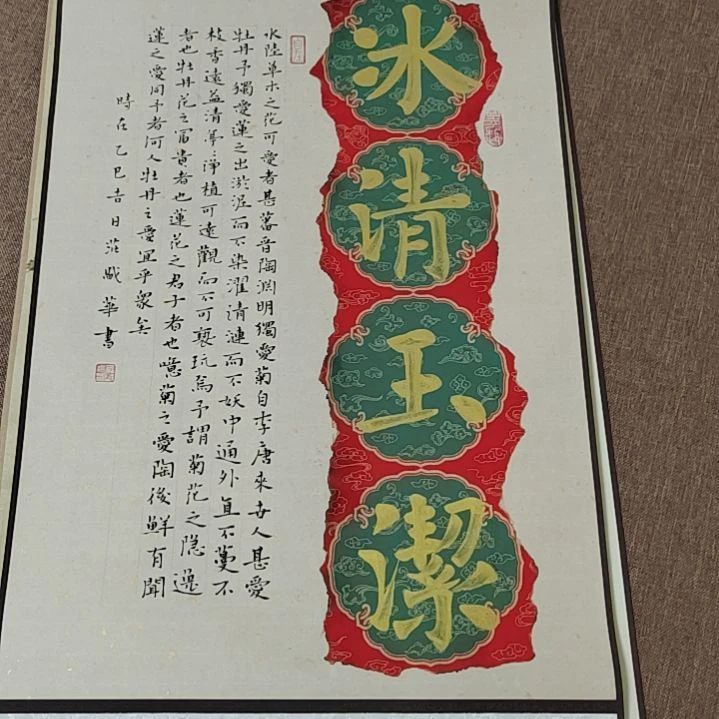 冰清玉潔
水陸草木之花可愛者甚蕃晉陶渊明獨愛菊自李唐來世人甚愛
牡丹予獨愛蓮之出淤泥而不染濯清漣而不妖中通外直不蔓不
枝香遠益清亭亭淨植可遠觀而不可褻玩焉予謂菊花之隐逸
者也牡丹花之富貴者也蓮花之君子者也噫菊之愛陶後鮮有聞
蓮之愛同予者何人牡丹之愛宜乎眾矣
時在乙巳吉日莊賦華書